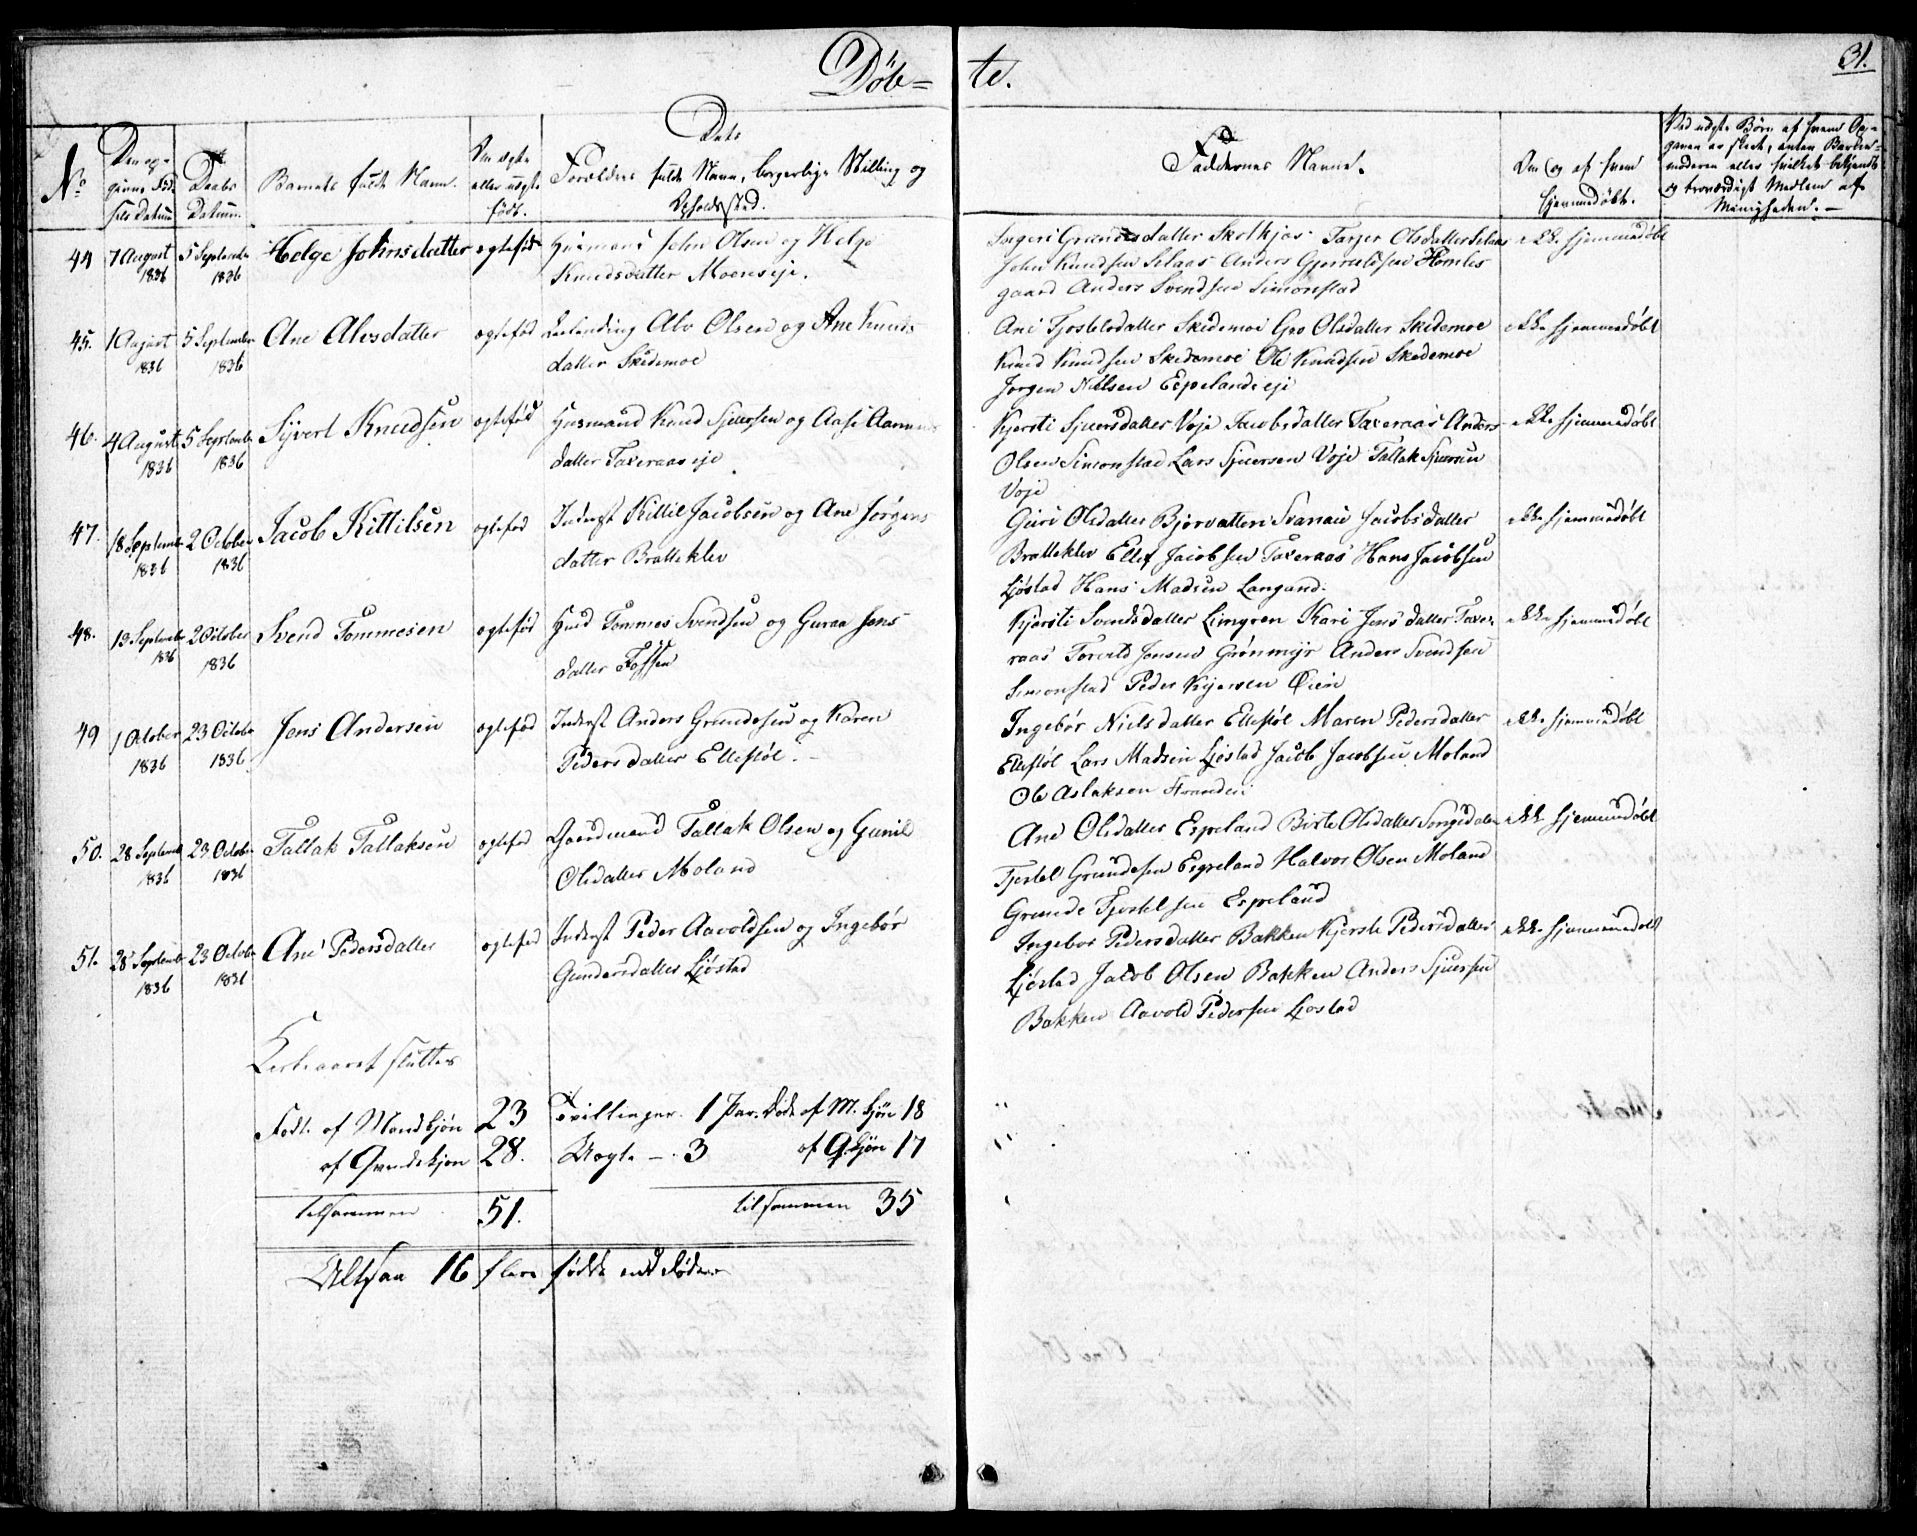 Døb=
te.
31.
No
Den eg=
Daabs
Datum.
Barnets fulde Navn.
Om ægte
eller uægte
født.
Dets
Forældres fulde Navn, borgerlige Stilling og
Opholdssted.
Faddernes Navne.
Om og af hvem
hjemmedøbt.
Ved uægte Børn af hvem Op=
Menigheden.
44
7 August
1836
5 September
1836
Helge Johnsdatter
ægtefød
Huusmand John Olsen og Helge
Knudsdatter Moenseje.
Skolkjær Tarjer Olsdatter Selaas
John Knudsen Selaas Anders
gaard Anders Svendsen Simonstad
ikke hjemmedøbt
45.
1 August
1836
5 September
1836
Ane Alvsdatter
ægtefød
Leilending Alv Olsen og Ane Knuds
datter Skidemoe
Ane Tjostelsdatter Skidemoe Gro Olsdatter Skidemoe
Knud Knudsen Skidemoe Ole Knudsen Skidemoe
Jørgen Nielsen Espelandseje
ikke hjemmedøbt
46.
4 August
1836
5 September
1836
Syvert Knudsen
ægtefød
Huusmand Knud Sjursen og Aase Aanons
datter Taxeraaseje
Kjersti Sjursdatter Voje Jacobsdatter Taxeraas Anders
Olsen Simonstad Lars Sjursen Voje Tallak Sjursen
Voje
ikke hjemmedøbt
47.
18 September
1836
2 October
1836
Jacob Kittilsen
ægtefød
Inderst Kittil Jacobsen og Ane Jørgens
datter Bratteklev
Guri Olsdatter Bjorvatten Svanau Jacobsdatter
Bratteklev Ellef Jacobsen Taxeraas Hans Jacobsen
Ljøstad Hans Madsen Langand.
ikke hjemmedøbt
48.
19 September
1836
2 October
1836
Svend Tommesen
ægtefød
Huusd Tommes Svendsen og Guraa Jens
datter Fossen
Kjersti Svendsdatter Limgren Kari Jensdatter Taxe
raas Torvild Jensen Grønmyr Anders Svendsen
Simonstad Peder Kjersen Øien
ikke hjemmedøbt
49
1 October
1836
23 October
1836
Jens Andersen
ægtefød
Inderst Anders Grundesen og Karen
Pedersdatter Ellestøl.
Ingebør Nielsdatter Ellestøl Maren Pedersdatter
Ellestøl Lars Madsen Ljøstad Jacob Jacobsen Moland
Ole Aslaksen Stranden
ikke hjemmedøbt
50.
28 September
1836
23 October
1836
Tallak Tallaksen
ægtefød
Gaardmand Tallak Olsen og Gunild
Olsdatter Moland
Ane Olsdatter Espeland Birte Olsdatter Songedalen
Tjostel Grundesen Espeland Halvor Olsen Moland
Grunde Tjostelsen Espeland
ikke hjemmedøbt
51.
28 September
1836
23 October
1836
Ane Pedersdatter
ægtefød
Inderst Peder Aavoldsen og Ingebør
Gundersdatter Ljøstad
Ingebor Pedersdatter Bakken Kjerste Pedersdatter
Ljøstad Jacob Olsen Bakken Anders Sjursen
Bakken Aavold Pedersen Ljostad
ikke hjemmedøbt
Kirkeaaret sluttes
Født af Mandkjøn 23 Tvillinger. 1 Par. Døde af M. kjøn 18
af Qvindekjøn 28. Uægte – . 3 af Q. kjøn 17
tilsammen 51. tilsammen 35
Altsaa 16 flere fødde end døde